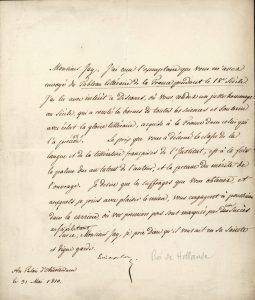 Monsieur Jay, J'ai reçu l'exemplaire que vous m'avez
envoyé du Tableau littéraire de la France pendant le 18e Siècle.
J'ai lu avec intérêt ce Discours, où vous rendez un juste hommage
au Siècle, qui a reculé les bornes de toutes les sciences et soutenu
avec éclat la gloire littéraire, acquise à la France dans celui qui
l'a précédé. Le prix que vous a décerné la classe de la
langue et de la littérature françaises de l'Institut, est à la fois
la palme due au talent de l'auteur, et la preuve du mérite de
l'ouvrage. Je désire que les suffrages que vous obtenez, et
auxquels je joins avec plaisir le mien, vous engagent à
dans la carrière, où vos premiers pas sont marqués par des succès
Sur ce, Monsieur Jay, je prie Dieu qu'il vous ait en sa sainte
et digne garde.
Roi de Hollande
Au Palais d'Amsterdam
le 31 Mai 1810.